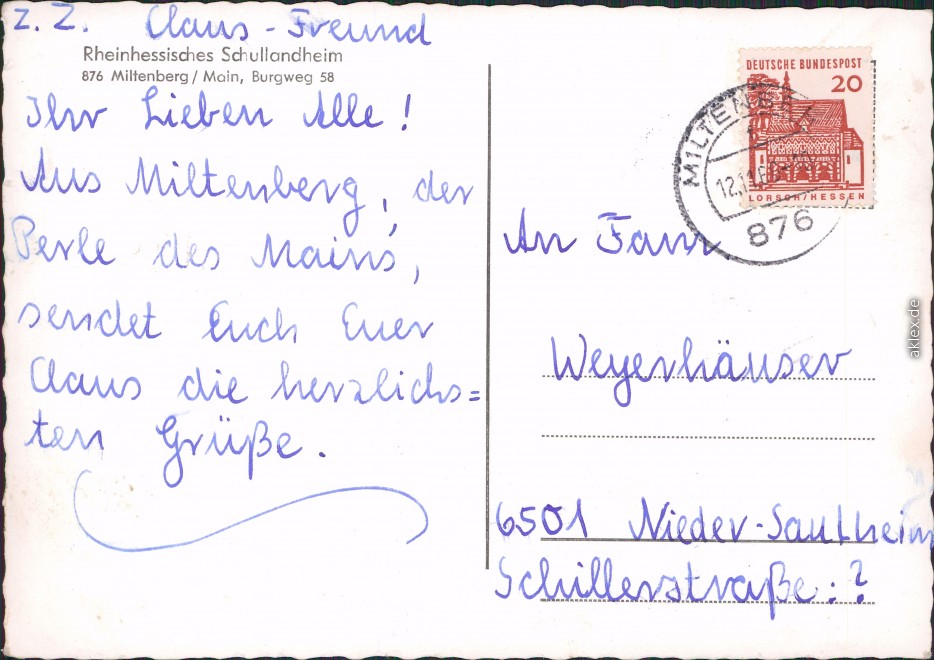 Z. Z. Claus-Freund
Rheinhessisches Schullandheim
876 Miltenberg / Main, Burgweg 58
Ihr Lieben Alle!
Aus Miltenberg, der
Perle des Mains,
sendet Euch Euer
Claus die herzlichs=
ten Grüße.
DEUTSCHE BUNDESPOST
20
LORSCH/HESSEN
MILTENBERG
12.11.6
876
An Fam.
Weyerhäuser
6501 Nieder-Saulheim
Schillerstraße: ?
aklex.de